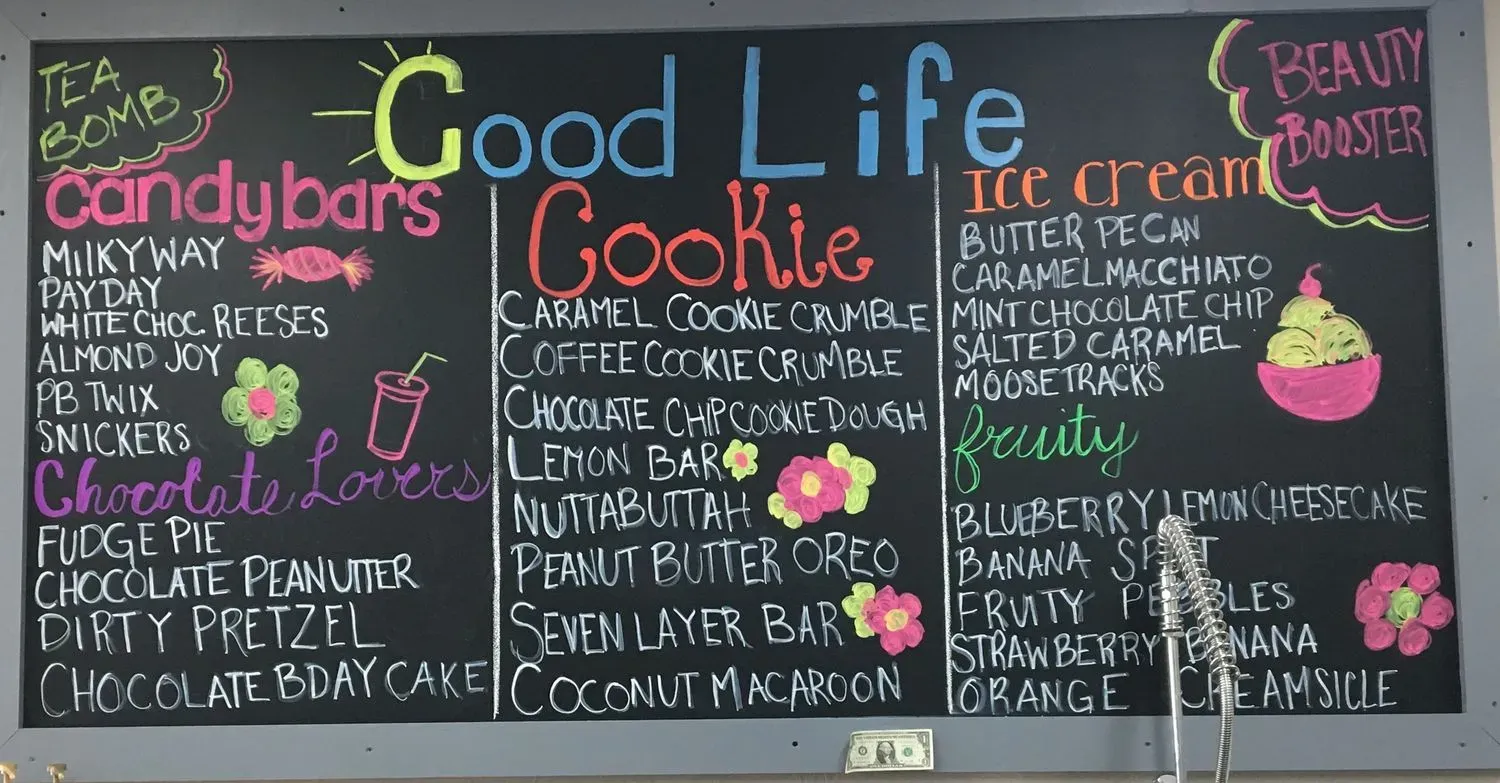 TEA
BOMB
Good Life
BEAUTY
BOOSTER
candy bars
MILKYWAY
PAYDAY
WHITE CHOC. REESES
ALMOND JOY
PB TWIX
SNICKERS
Chocolate Lovers
FUDGE PIE
CHOCOLATE PEANUTTER
DIRTY PRETZEL
CHOCOLATE BDAY CAKE
Cookie
CARAMEL COOKIE CRUMBLE
COFFEE COOKIE CRUMBLE
CHOCOLATE CHIP COOKIE DOUGH
LEMON BAR
NUTTABUTTAH
PEANUT BUTTER OREO
SEVEN LAYER BAR
COCONUT MACAROON
Ice cream
BUTTER PECAN
CARAMEL MACCHIATO
MINT CHOCOLATE CHIP
SALTED CARAMEL
MOOSETRACKS
fruity
BLUEBERRY LEMON CHEESECAKE
BANANA SPLIT
FRUITY PEBBLES
STRAWBERRY BANANA
ORANGE CREAMSICLE